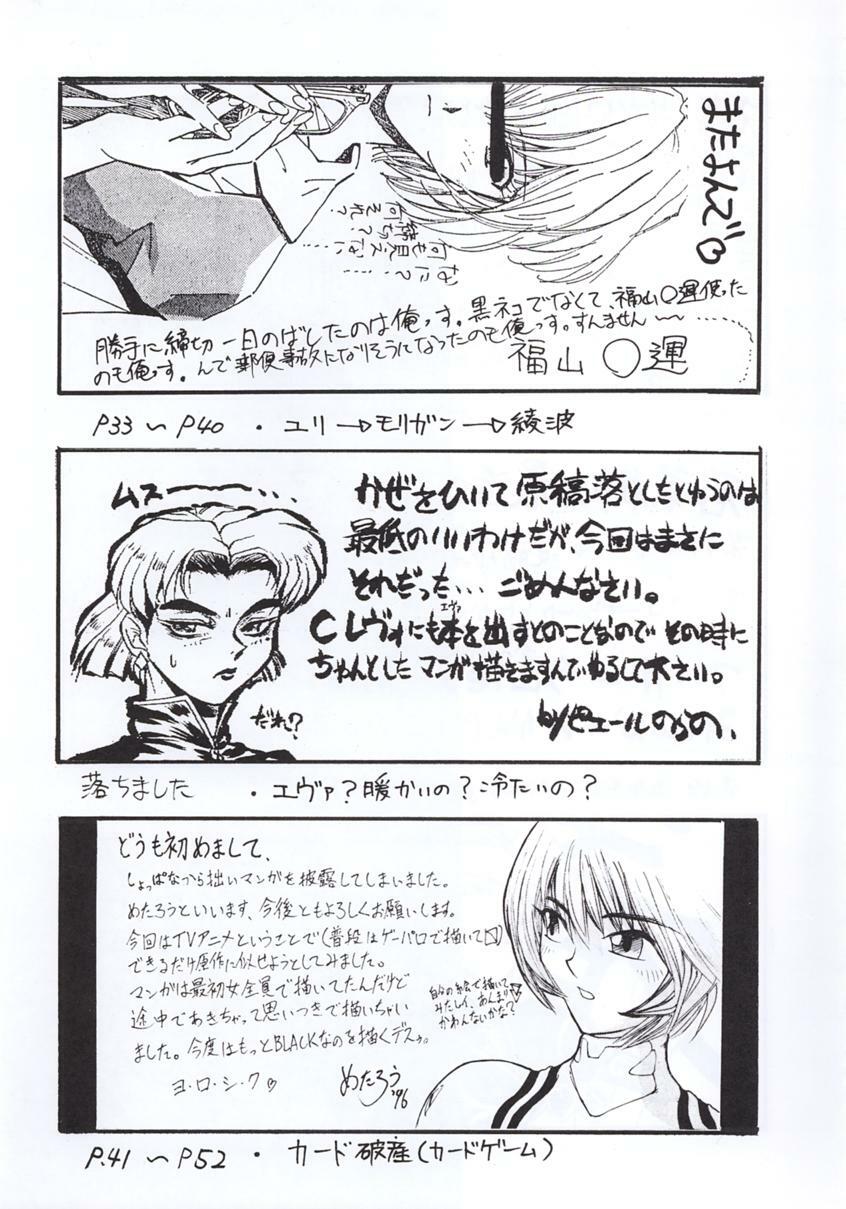 またよんで♡
何それ?
落ち?
何も見えない
なに?……
勝手に締切一日のばしたのは俺っす。黒ネコでなくて、福山〇運使った
のも俺っす。んで郵便事故になりそうになったのも俺っす。すんません〜……
福山〇運
P33〜P40 ・ ユリ→モリガン→綾波
ムスー……
かぜをひいて原稿落としたとゆうのは
最低のいいわけだが、今回はまさに
それだった… ごめんなさい。
エヴァ
Cレヴォにも本を出すとのことなので その時に
ちゃんとしたマンガ描きますんでゆるして下さい。
だれ!?
落ちました ・ エヴァ?暖かいの?冷たいの?
どうも初めまして、
しょっぱなから拙いマンガを披露してしまいました。
めたろうといいます、今後ともよろしくお願いします。
今回はTVアニメということで(普段はゲーパロで描いて〼)
できるだけ原作に似せようとしてみました。
マンガは最初女全員で描いてたんだけど
途中であきちゃって思いつきで描いちゃい
ました。今度はもっとBLACKなのを描くデスゥ。
ヨ・ロ・シ・ク♡
めたろう
'96
自分の絵で描いて
みたしィ、あんまり
かわんないかな?
P.41〜P52 ・ カード破産(カードゲーム)